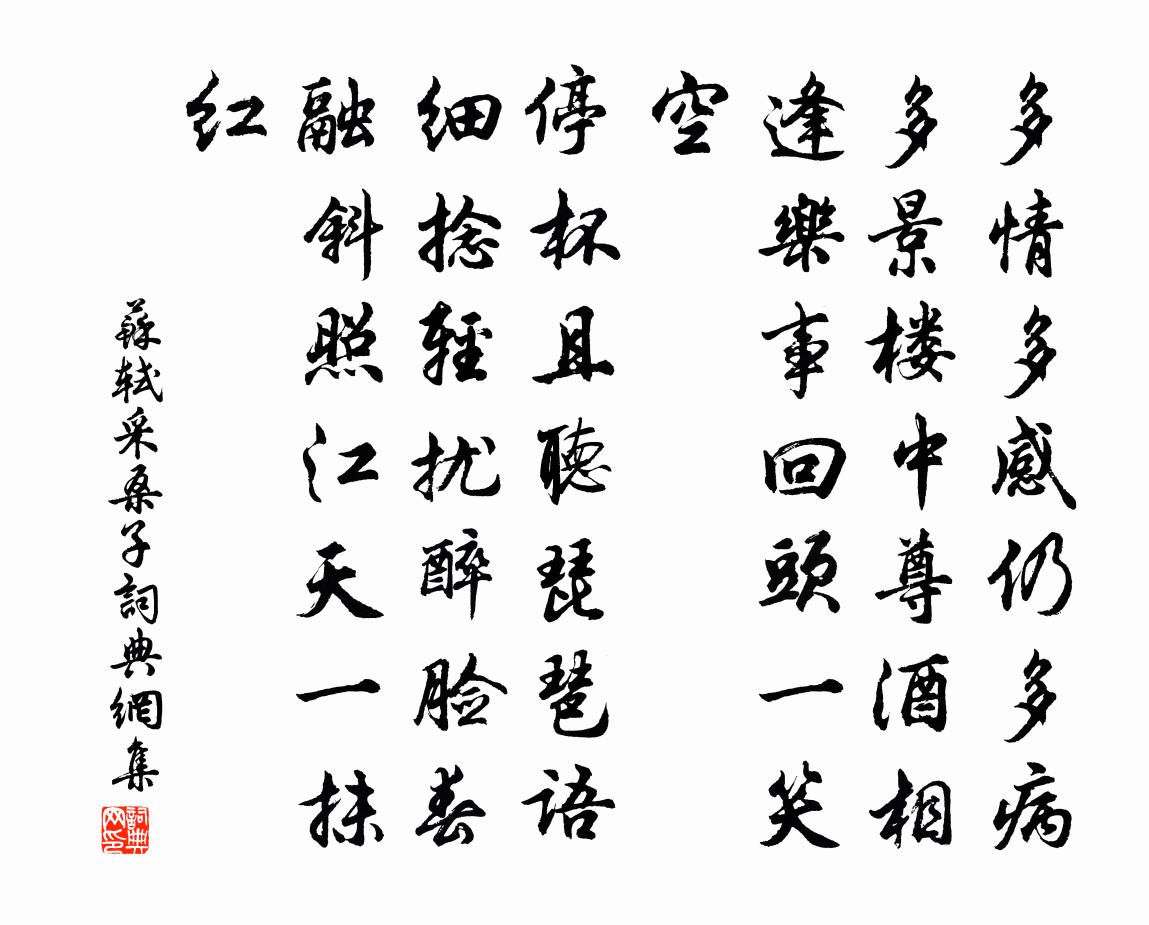 多情多感仍多病
多景楼中尊酒相
逢樂事回頭一笑
空
停杯且聽琵琶語
细捻輕扰醉脸春
融斜照江天一抹
红
蘇軾采桑子詞典網集
詞典网印